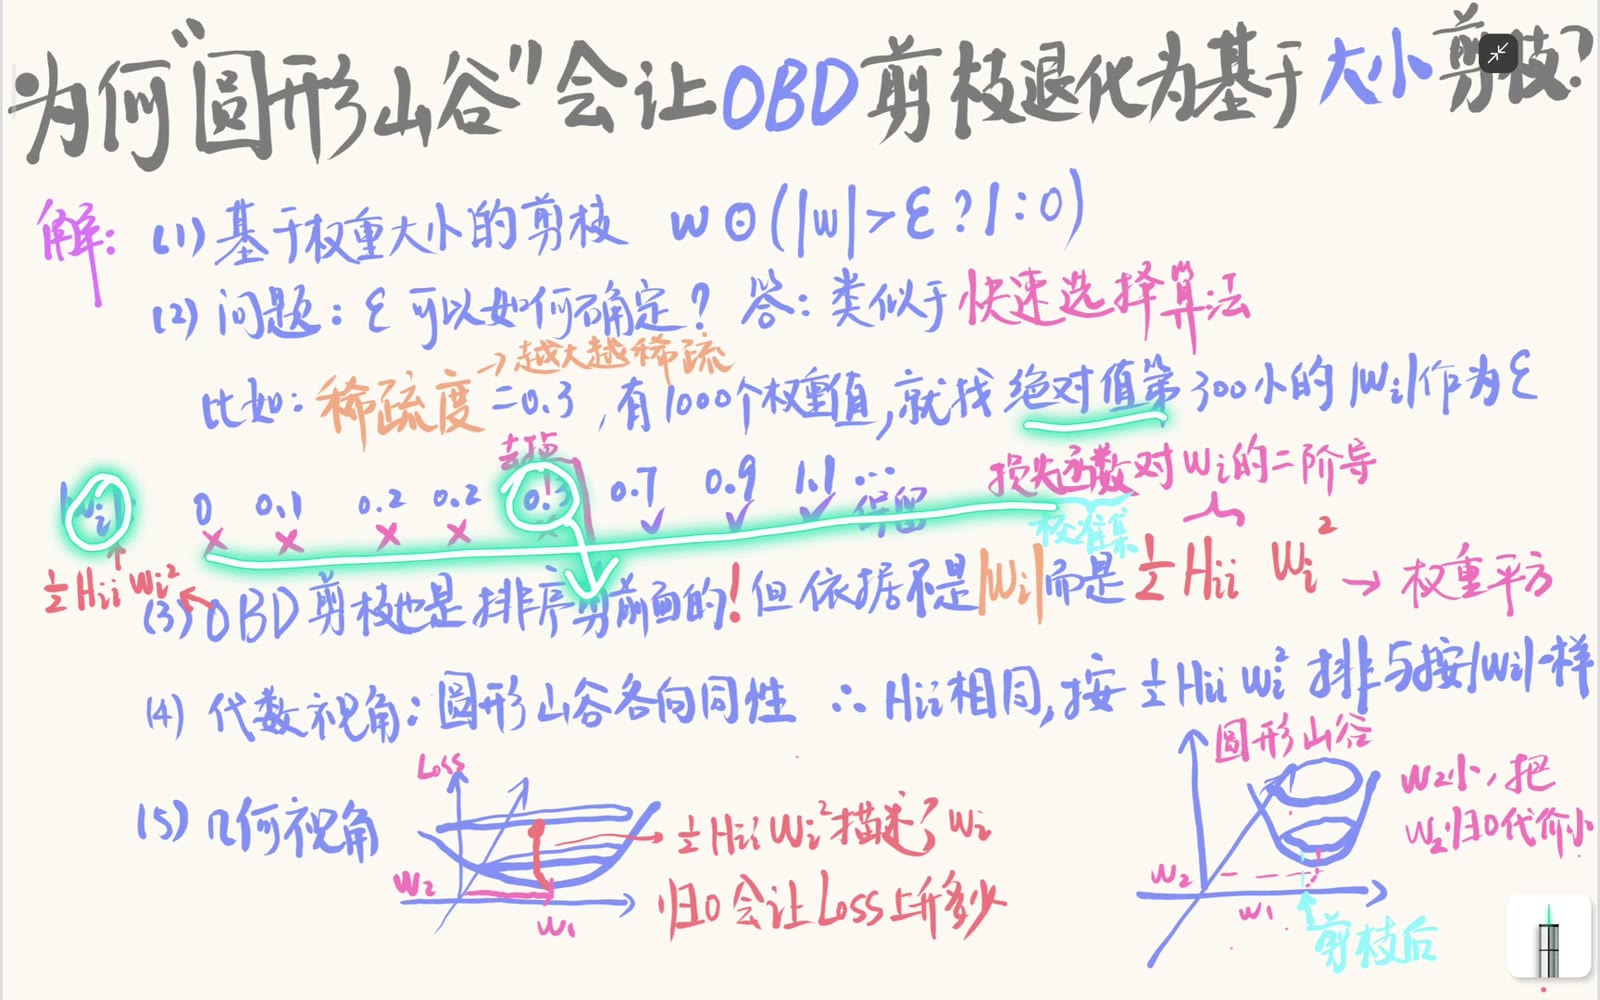 为何"圆形山谷"会让OBD剪枝退化为基于大小剪枝?
解: (1) 基于权重大小的剪枝 w⊙(|w|>ε?1:0)
(2) 问题: ε可以如何确定? 答: 类似于快速选择算法
→越大越稀疏
比如: 稀疏度=0.3, 有1000个权重值, 就找绝对值第300小的|Wi|作为ε
去掉
损失函数对Wi的二阶导
|Wi|: 0 0.1 0.2 0.2 0.3 0.7 0.9 1.1 ...
× × × × × ✓ ✓ ✓ 保留
校准集
½HiiWi²
(3) OBD剪枝也是排序剪前面的! 但依据不是|Wi|而是½Hii Wi² → 权重平方
(4) 代数视角: 圆形山谷各向同性 ∴ Hii相同, 按½HiiWi²排与按|Wi|一样
(5) 几何视角
Loss
W2
W1
½HiiWi²描述了Wi
归0会让Loss上升多少
圆形山谷
W2
W1
剪枝后
W2小, 把
W2归0代价小